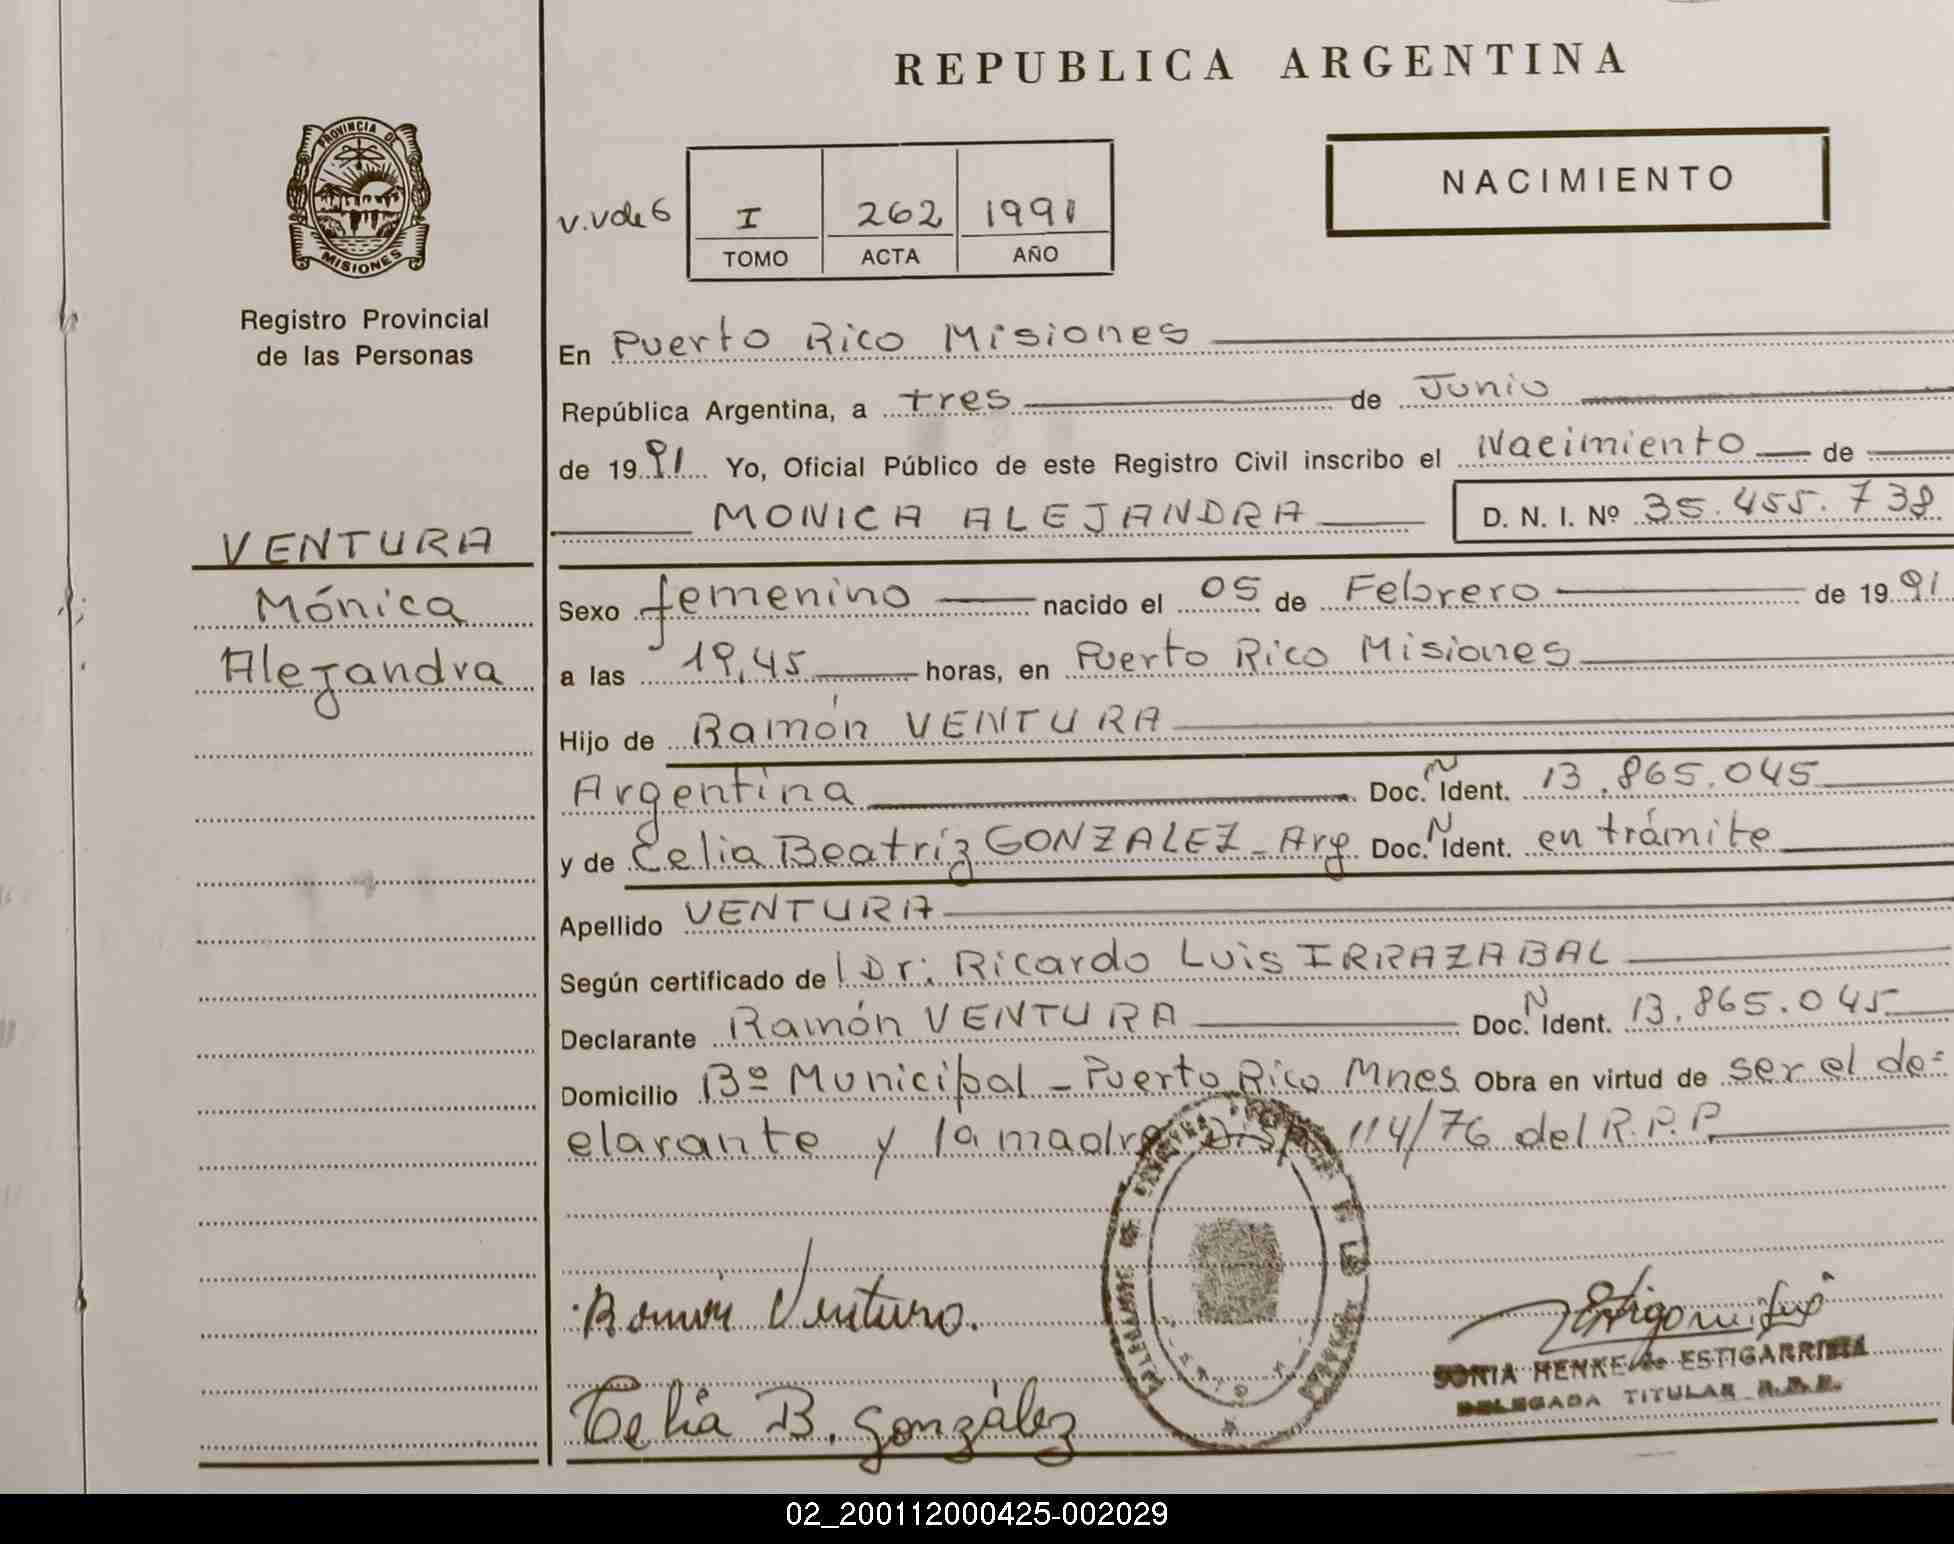 REPUBLICA ARGENTINA
PROVINCIA DE
MISIONES
Registro Provincial
de las Personas
NACIMIENTO
v.vde6 I 262 1991
TOMO ACTA AÑO
En Puerto Rico Misiones
República Argentina, a tres de Junio
de 1991 Yo, Oficial Público de este Registro Civil inscribo el Nacimiento de
MONICA ALEJANDRA D. N. I. Nº 35.455.738
VENTURA
Mónica
Alejandra
Sexo femenino nacido el 05 de Febrero de 1991
a las 19,45 horas, en Puerto Rico Misiones
Hijo de Ramón VENTURA
Argentina Doc. N Ident. 13.865.045
y de Celia Beatríz GONZALEZ - Arg Doc. N Ident. en trámite
Apellido VENTURA
Según certificado de l Dr: Ricardo Luis IRRAZABAL
Declarante Ramón VENTURA Doc. N Ident. 13.865.045
Domicilio Bº Municipal - Puerto Rico Mnes Obra en virtud de ser el de=
clarante y la madre Disp 114/76 del R.P.P.
Ramón Ventura.
Celia B. González
SONIA HENKE de ESTIGARRIBIA
DELEGADA TITULAR R.P.P.
02_200112000425-002029